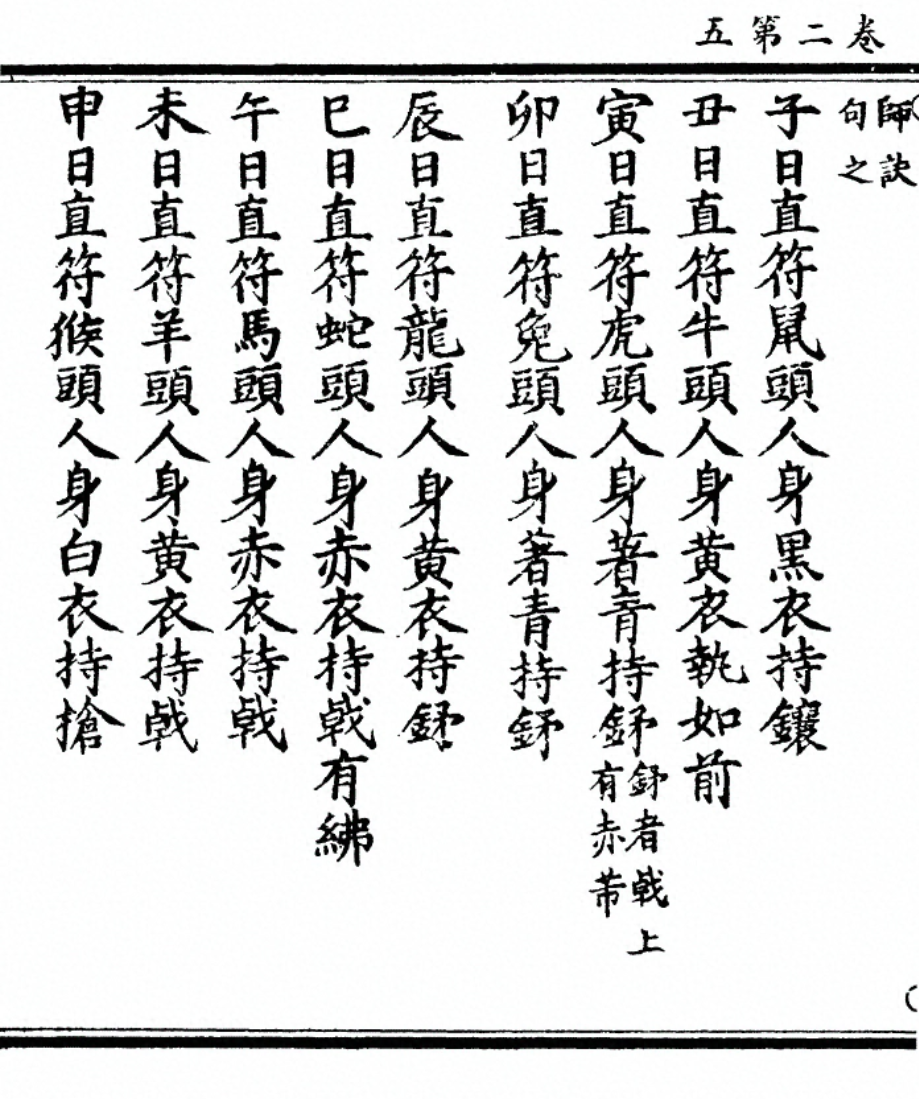 卷二第五
師訣
句之
子日直符鼠頭人身黑衣持鑲
丑日直符牛頭人身黄衣執如前
寅日直符虎頭人身著青持鉘鉘者戟上有赤芾
卯日直符兔頭人身著青持鉘
辰日直符龍頭人身黄衣持鉘
巳日直符蛇頭人身赤衣持戟有紼
午日直符馬頭人身赤衣持戟
未日直符羊頭人身黄衣持戟
申日直符猴頭人身白衣持搶